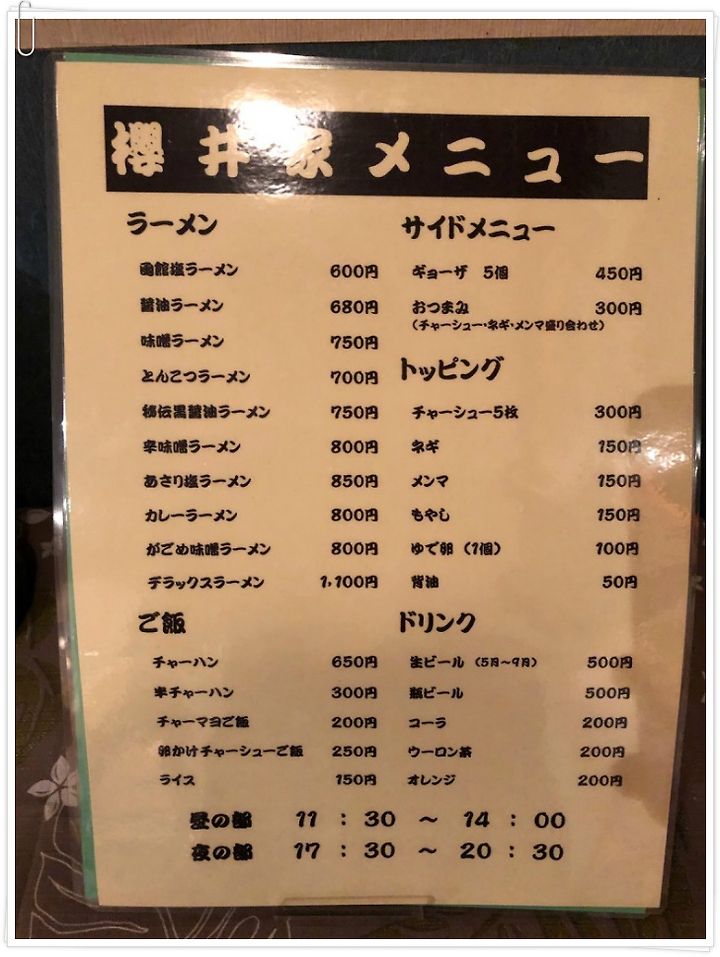 櫻井家メニュー
ラーメン
函館塩ラーメン 600円
醤油ラーメン 680円
味噌ラーメン 750円
とんこつラーメン 700円
秘伝黒醤油ラーメン 750円
辛味噌ラーメン 800円
あさり塩ラーメン 850円
カレーラーメン 800円
がごめ味噌ラーメン 800円
デラックスラーメン 1,100円
ご飯
チャーハン 650円
半チャーハン 300円
チャーマヨご飯 200円
卵かけチャーシューご飯 250円
ライス 150円
サイドメニュー
ギョーザ 5個 450円
おつまみ 300円
（チャーシュー・ネギ・メンマ盛り合わせ）
トッピング
チャーシュー5枚 300円
ネギ 150円
メンマ 150円
もやし 150円
ゆで卵（1個） 100円
背油 50円
ドリンク
生ビール（5月～9月） 500円
瓶ビール 500円
コーラ 200円
ウーロン茶 200円
オレンジ 200円
昼の部 11：30 ～ 14：00
夜の部 17：30 ～ 20：30